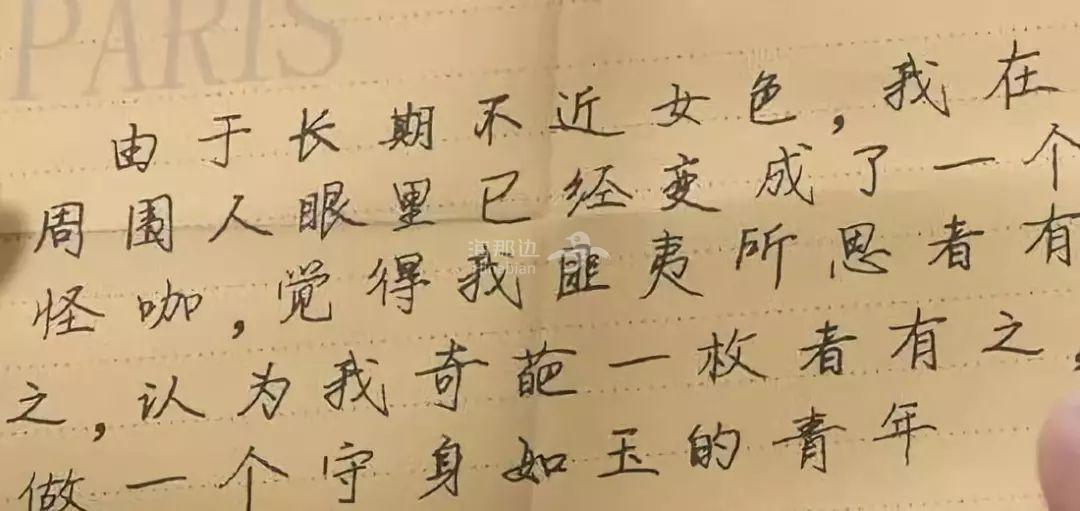 PARIS
由于长期不近女色,我在
周围人眼里已经变成了一个
怪咖,觉得我匪夷所思者有
之,认为我奇葩一枚者有之,
做一个守身如玉的青年
海那边